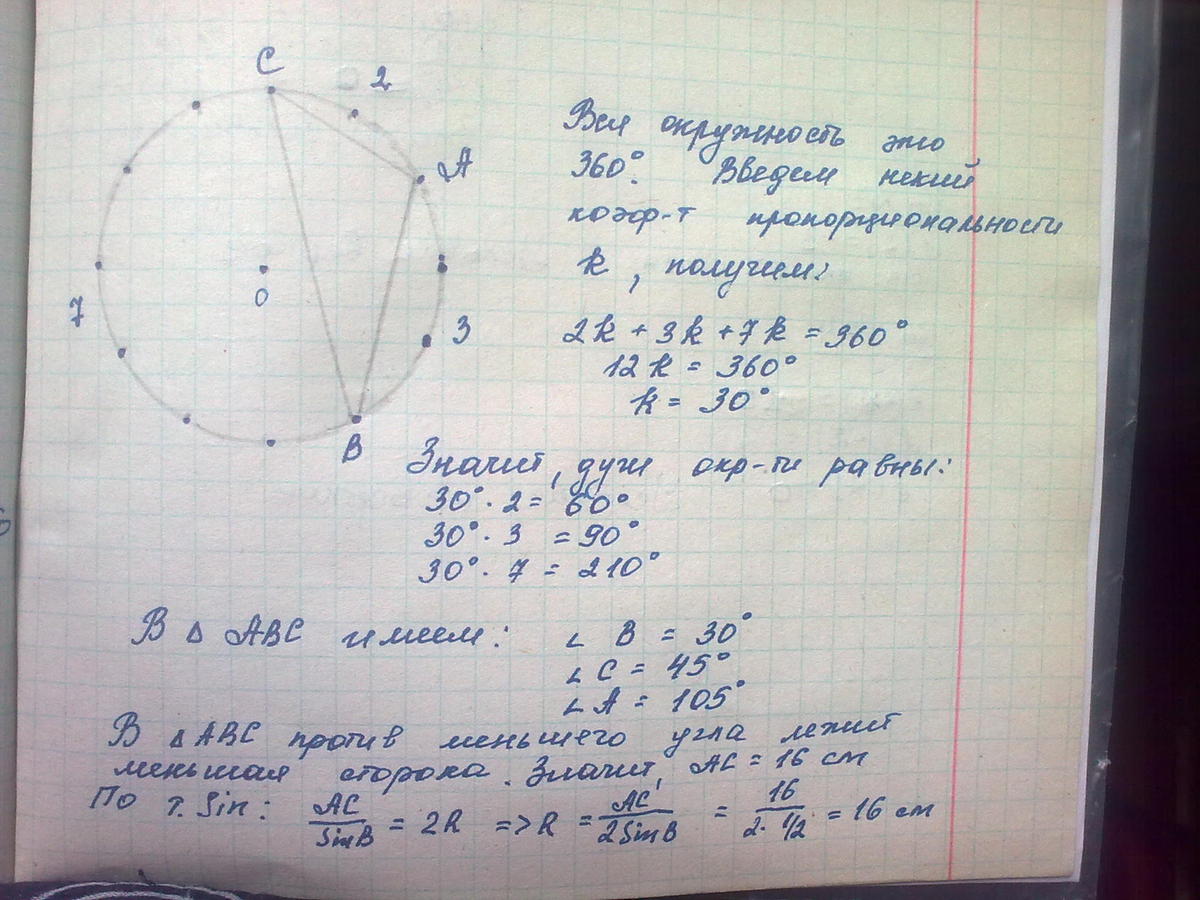 C
2
A
7
O
3
B
Вся окружность это
360°. Введем некий
коэф-т пропорциональности
k, получим:
2k + 3k + 7k = 360°
12k = 360°
k = 30°
Значит, дуги окр-ти равны:
30° · 2 = 60°
30° · 3 = 90°
30° · 7 = 210°
В △ ABC имеем:
∠ B = 30°
∠ C = 45°
∠ A = 105°
В △ABC против меньшего угла лежит
меньшая сторона. Значит, AC = 16 см
По т. Sin: AC/SinB = 2R => R = AC/2SinB = 16/2·1/2 = 16 см